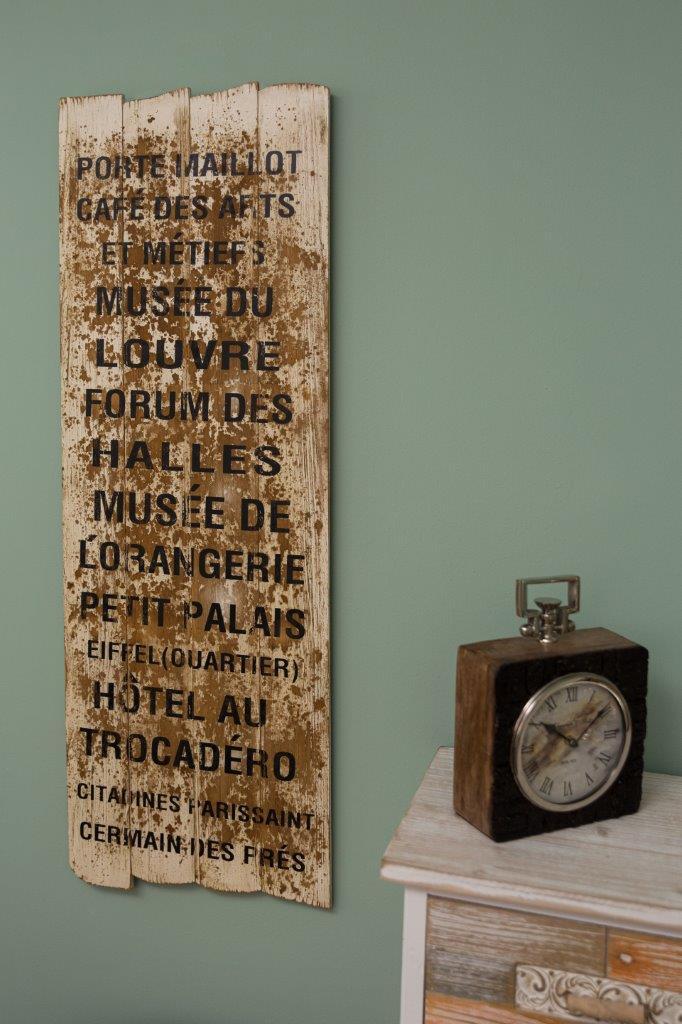 PORTE MAILLOT
CAFÉ DES ARTS
ET MÉTIERS
MUSÉE DU
LOUVRE
FORUM DES
HALLES
MUSÉE DE
L'ORANGERIE
PETIT PALAIS
EIFFEL(QUARTIER)
HÔTEL AU
TROCADÉRO
CITADINES PARISSAINT
CERMAIN-DES PRÉS